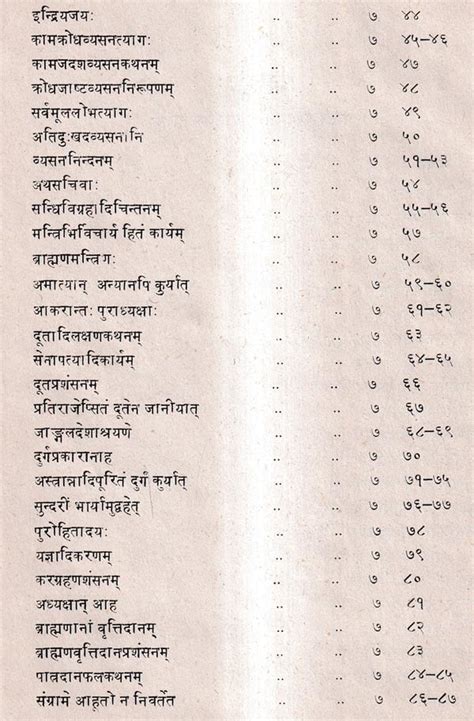 इन्द्रियजयः .. .. ७ ४४
कामक्रोधव्यसनत्यागः .. .. ७ ४५–४६
कामजदशव्यसनकथनम् .. .. ७ ४७
क्रोधजाष्टव्यसननिरूपणम् .. .. ७ ४८
सर्वमूललोभत्यागः .. .. ७ ४९
अतिदुःखदव्यसनानि .. .. ७ ५०
व्यसननिन्दनम् .. .. ७ ५१–५३
अथसचिवाः .. .. ७ ५४
सन्धिविग्रहादिचिन्तनम् .. .. ७ ५५–५६
मन्त्रिभिर्विचार्य हितं कार्यम् .. .. ७ ५७
ब्राह्मणमन्त्रिणः .. .. ७ ५८
अमात्यान् अन्यानपि कुर्यात् .. .. ७ ५९–६०
आकरान्तः पुराध्यक्षाः .. .. ७ ६१–६२
दूतादिलक्षणकथनम् .. .. ७ ६३
सेनापत्यादिकार्यम् .. .. ७ ६४–६५
दूतप्रशंसनम् .. .. ७ ६६
प्रतिराजेप्सितं दूतेन जानीयात् .. .. ७ ६७
जाङ्गलदेशाश्रयणे .. .. ७ ६८–६९
दुर्गप्रकारानाह .. .. ७ ७०
अस्त्रान्नादिपूरितं दुर्गं कुर्यात् .. .. ७ ७१–७५
सुन्दरीं भार्यामुद्वहेत् .. .. ७ ७६–७७
पुरोहितादयः .. .. ७ ७८
यज्ञादिकरणम् .. .. ७ ७९
करग्रहणशंसनम् .. .. ७ ८०
अध्यक्षान् आह .. .. ७ ८१
ब्राह्मणानां वृत्तिदानम् .. .. ७ ८२
ब्राह्मणवृत्तिदानप्रशंसनम् .. .. ७ ८३
पात्रदानफलकथनम् .. .. ७ ८४–८५
संग्रामे आहूतो न निवर्तेत .. .. ७ ८६–८७